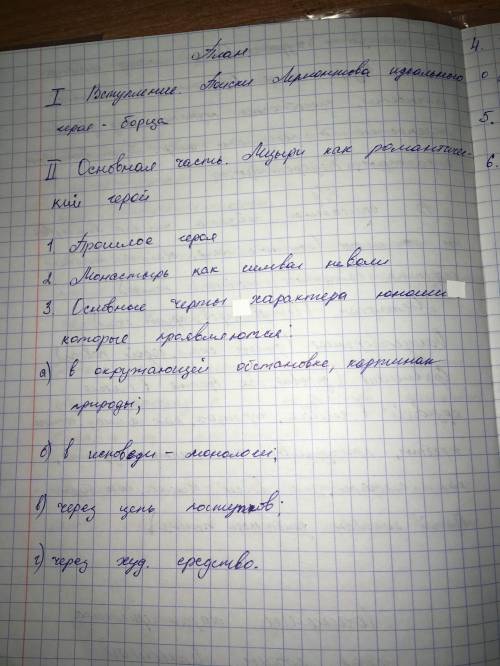 План
I Вступление Поиски Лермонтова идеального
героя - борца
II Основная часть. Мцыри как романтичес-
кий герой
1 Прошлое героя
2. Монастырь как символ неволи
3. Основные черты характера юноши
которые проявляются:
а) в окружающей обстановке, картинах
природы;
б) в исповеди - монологе;
в) через цепь поступков;
г) через худ. средство.
4.
о
5.
6.